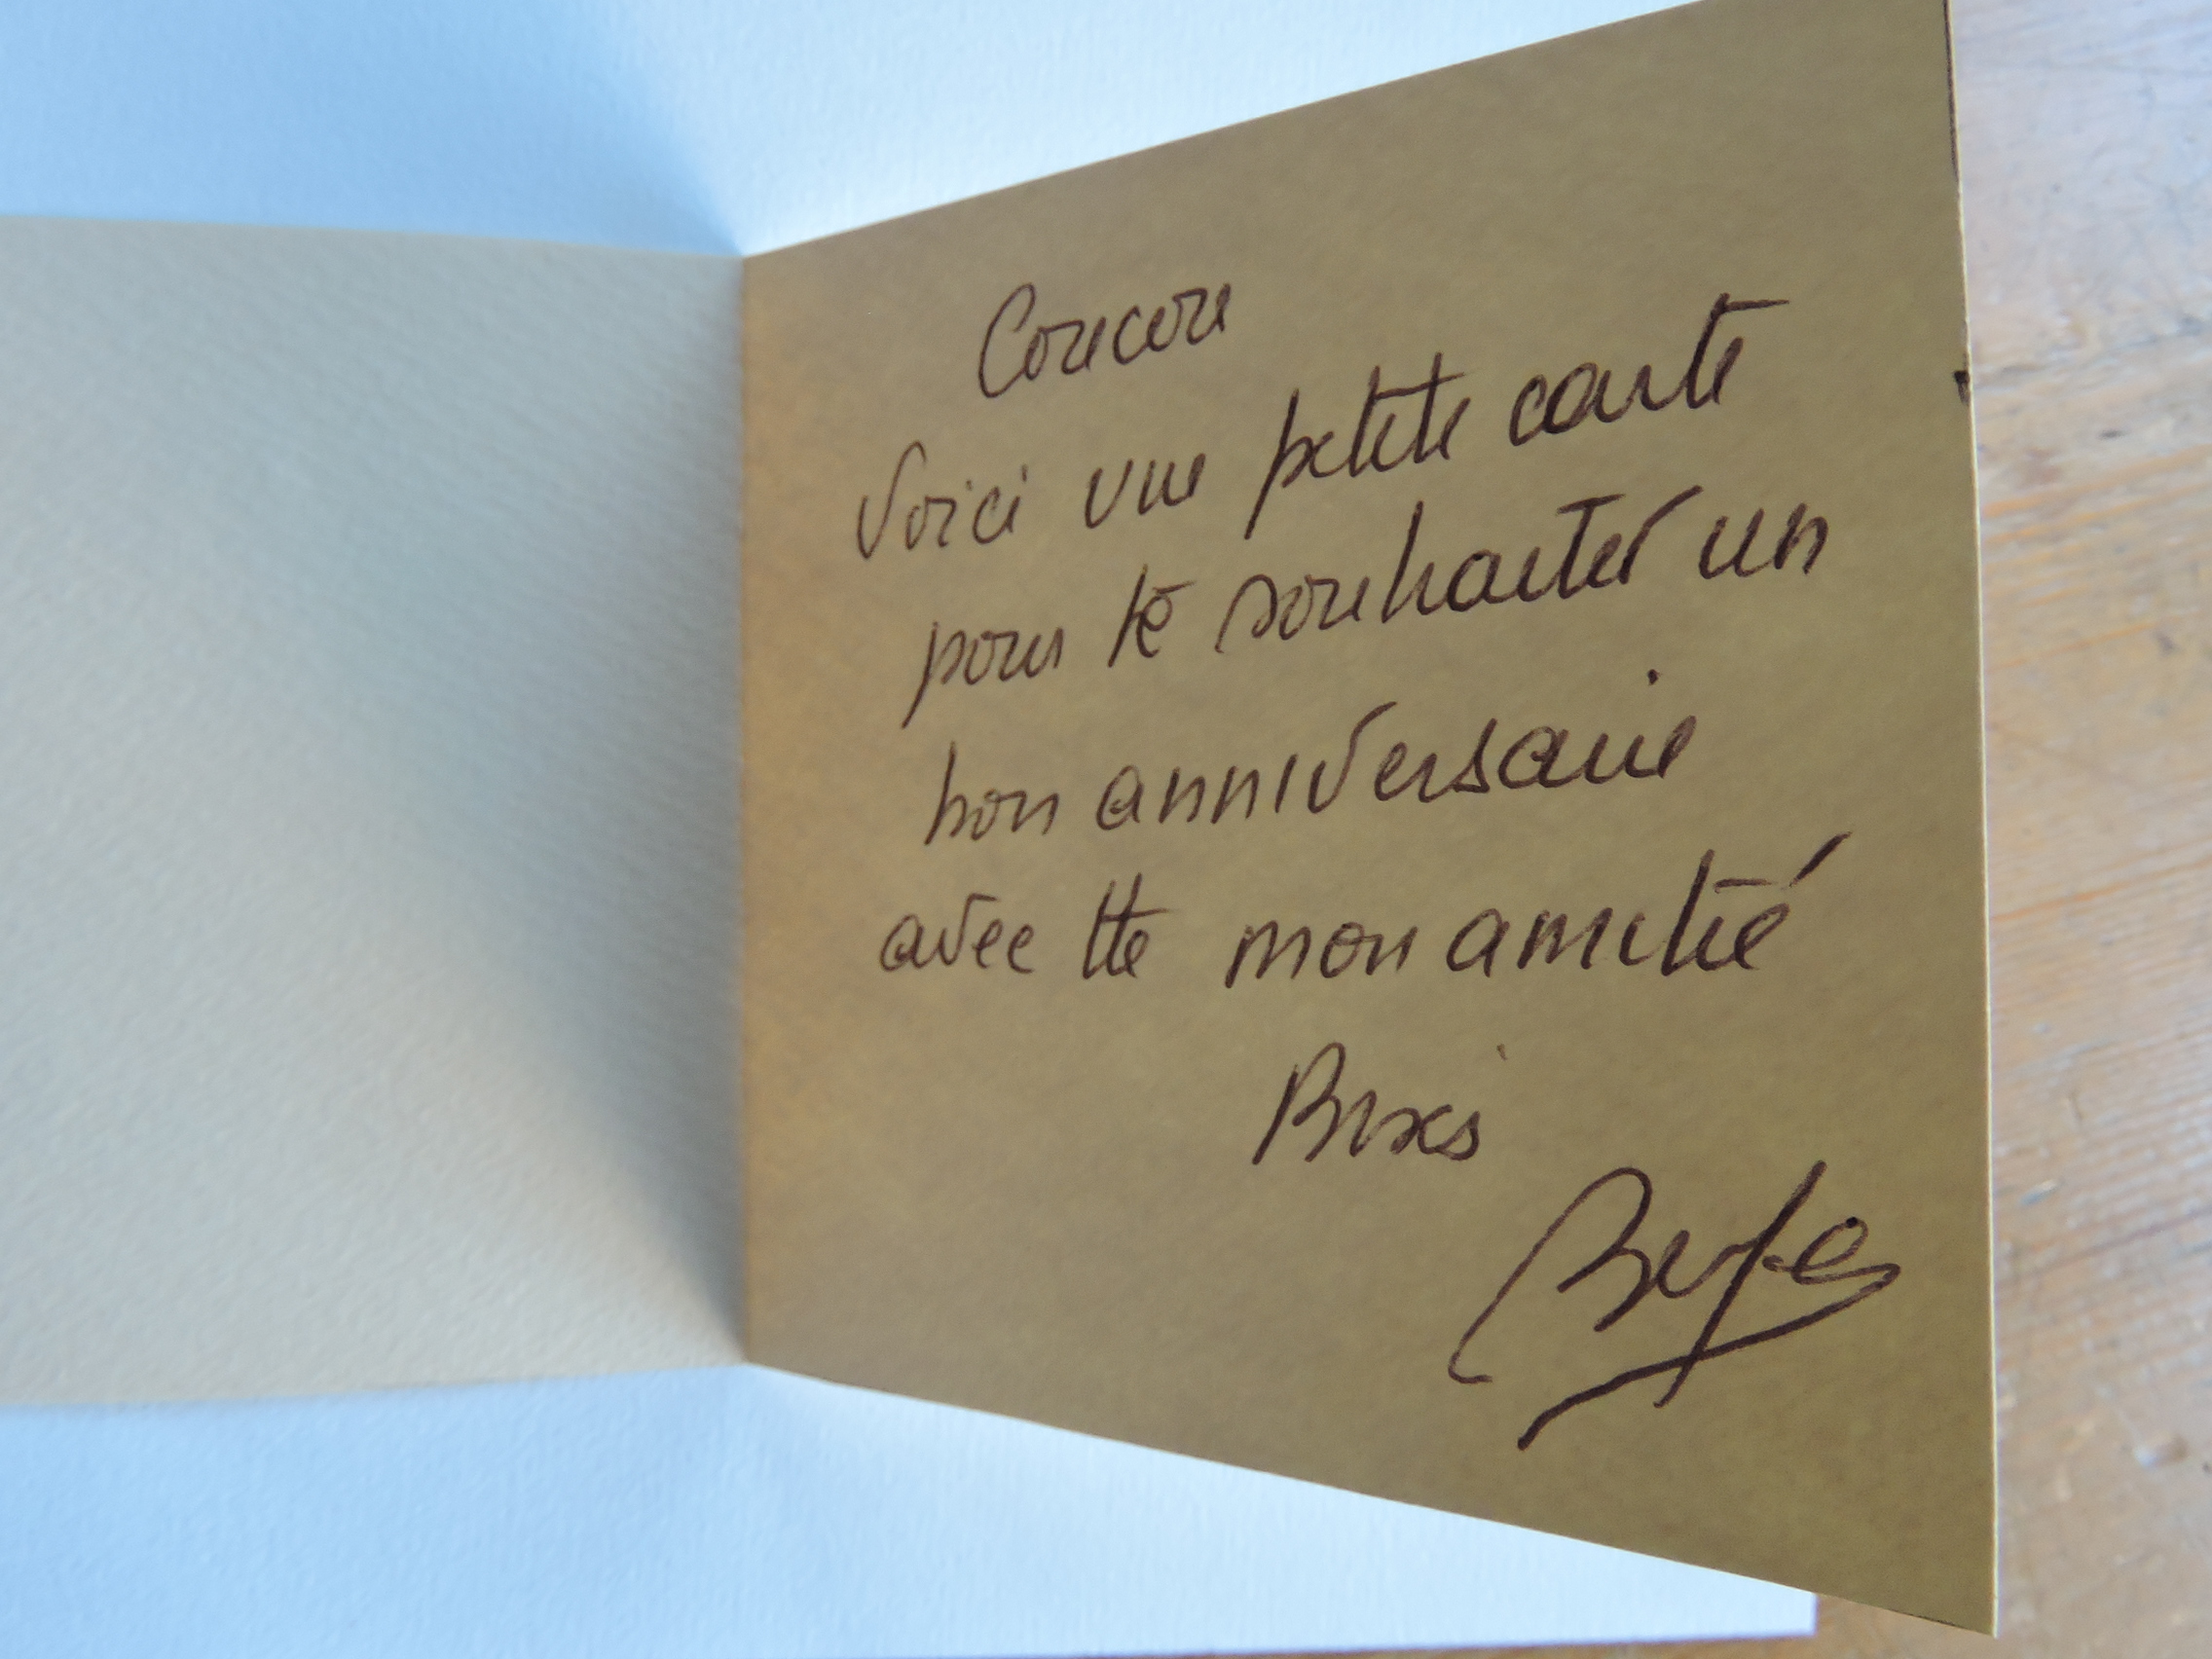 Coucou
Voici une petite carte
pour te souhaiter un
bon anniversaire
avec tte mon amitié
Bixs